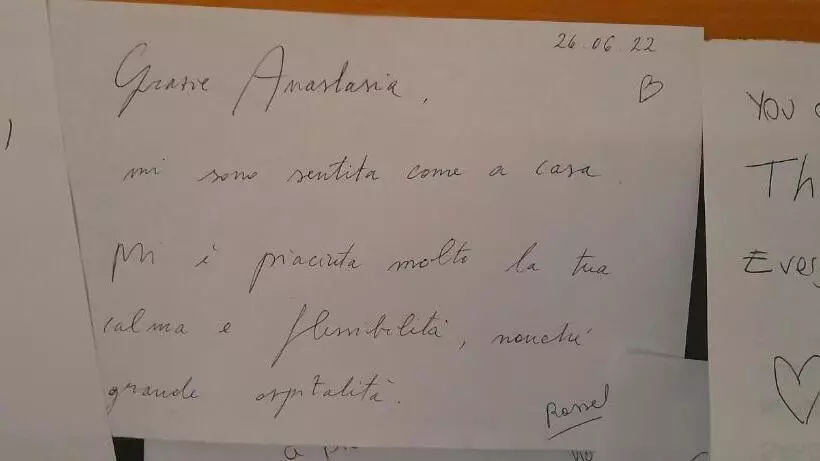 26.06.22
Grazie Anastasia,
mi sono sentita come a casa
Mi è piaciuta molto la tua
calma e flessibilità, nonché
grande ospitalità.
Rossel
YOU
Th
Every